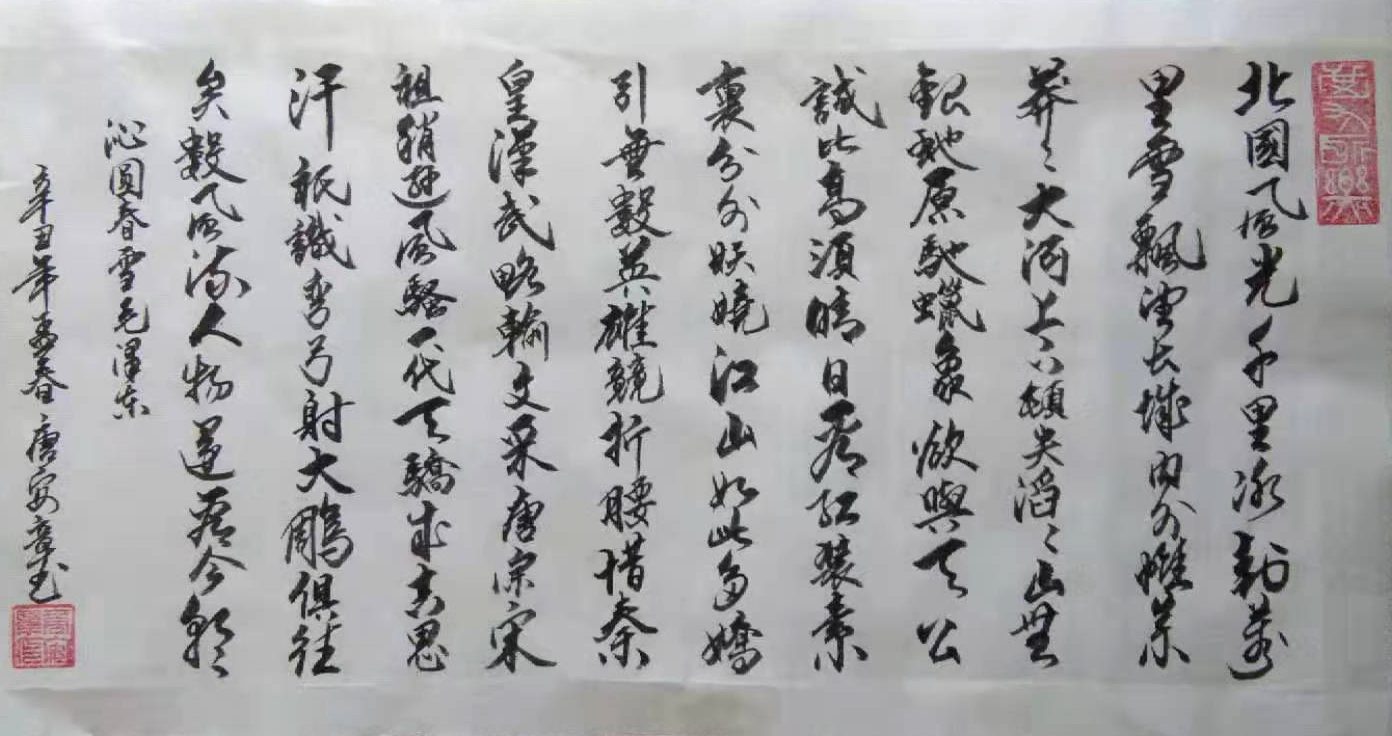 北國风光千里冰封萬
里雪飄望长城内外惟余
莽々大河上下頓失滔々山舞
銀蛇原馳蠟象欲與天公
試比高須晴日看紅裝素
裹分外妖嬈江山如此多嬌
引無數英雄競折腰惜秦
皇漢武略輸文采唐宗宋
祖稍遜風騷一代天驕成吉思
汗祇識彎弓射大鵰俱往
矣數风流人物還看今朝
沁圓春雪毛澤东
辛丑年孟春唐安章书